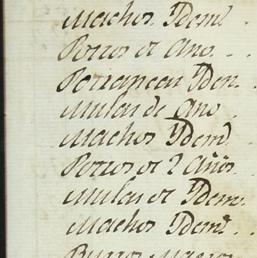 Machos Ydem
Potros de Año
Potrancas Yden
Mulas de Año
Machos Ydem
Potros de 2 Años
Mulas de Ydem
Machos Ydem
Burros Maesos